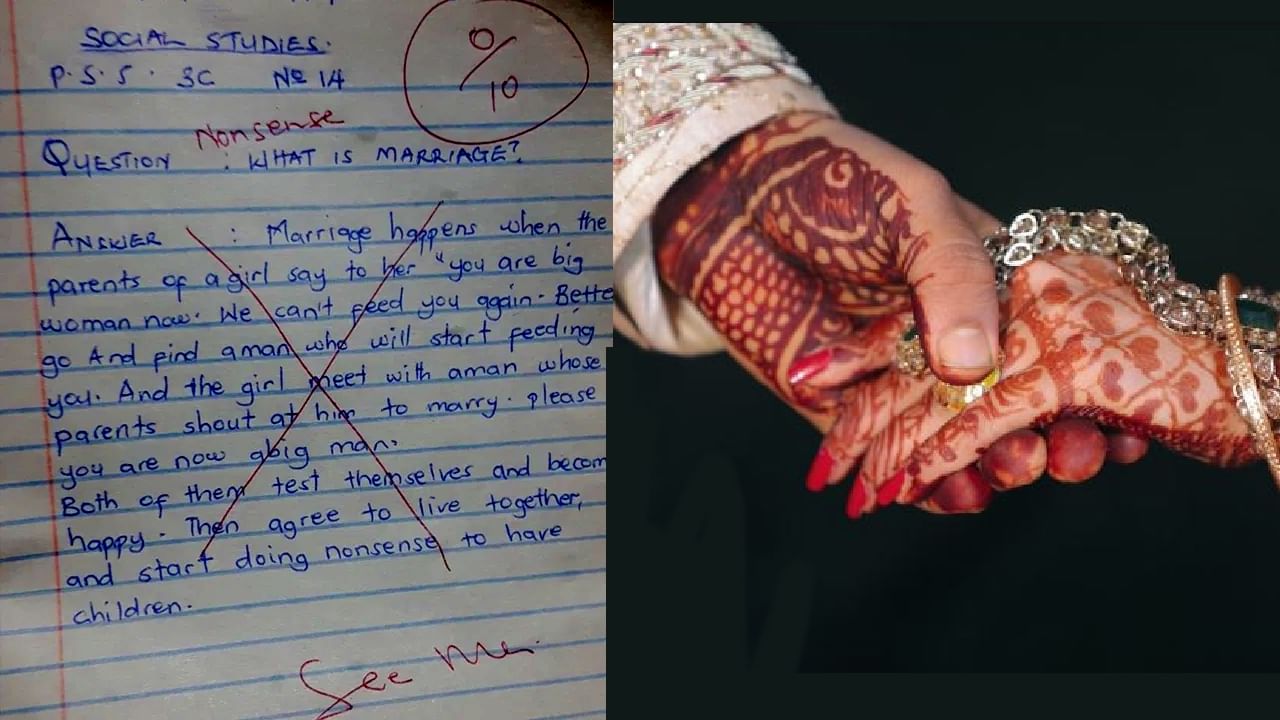 SOCIAL STUDIES.
P.S.S. 3C Nº 14
0/10
Nonsense
QUESTION : WHAT IS MARRIAGE?
ANSWER : Marriage happens when the
parents of a girl say to her "you are big
woman now. We can't feed you again. Bette
go And find a man who will start feeding
you. And the girl meet with aman whose
parents shout at him to marry. please
you are now abig man.
Both of them test themselves and becom
happy. Then agree to live together,
and start doing nonsense to have
children.
See Me.